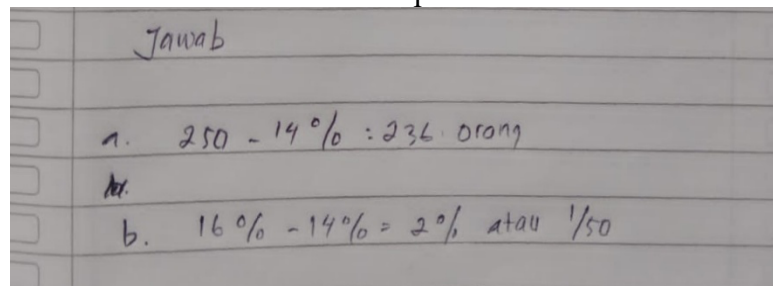 Jawab
a. 250 - 14% : 236 orang
b. 16% - 14% = 2% atau 1/50